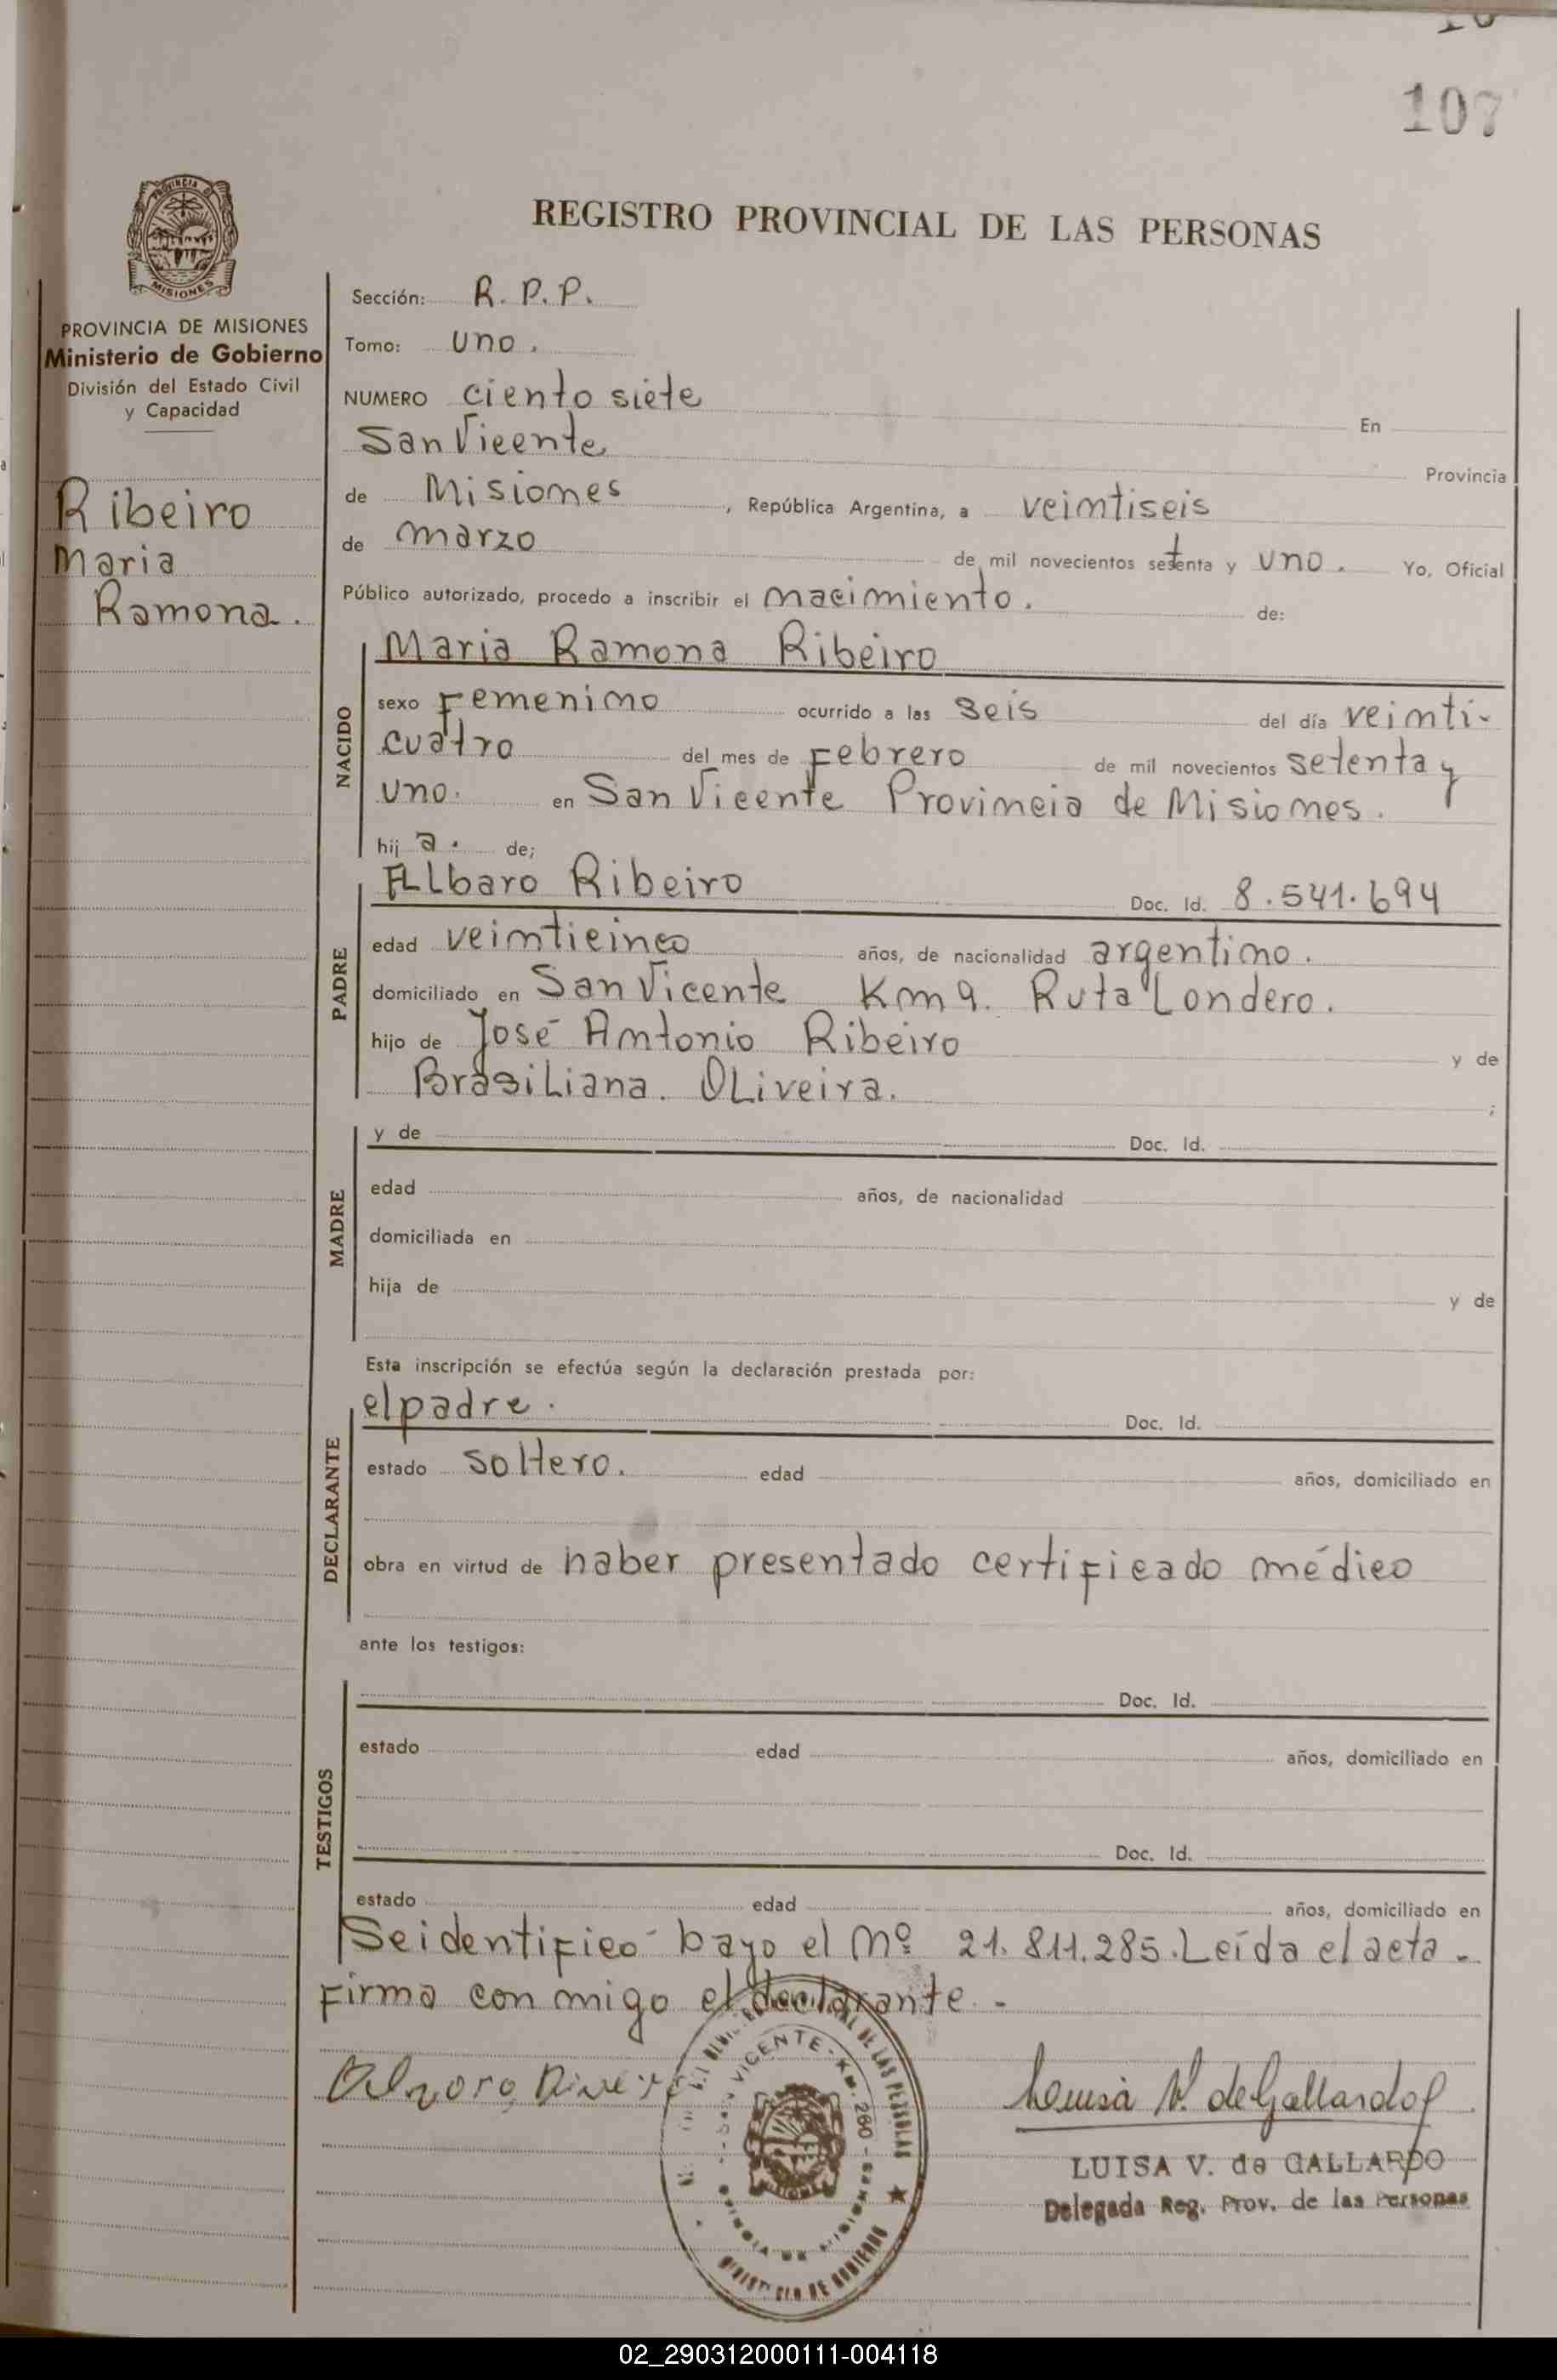 107
PROVINCIA DE MISIONES
Ministerio de Gobierno
División del Estado Civil
y Capacidad
Ribeiro
Maria
Ramona.
REGISTRO PROVINCIAL DE LAS PERSONAS
Sección: R. P. P.
Tomo: uno.
NUMERO ciento siete En
San Vicente Provincia
de Misiones, República Argentina, a veintiseis
de marzo de mil novecientos setenta y uno. Yo, Oficial
Público autorizado, procedo a inscribir el nacimiento. de:
NACIDO
Maria Ramona Ribeiro
sexo Femenino ocurrido a las seis del día veinti-
cuatro del mes de Febrero de mil novecientos setenta y
uno. en San Vicente Provincia de Misiones.
hij a. de;
PADRE
Albaro Ribeiro Doc. Id. 8.541.694
edad veinticinco años, de nacionalidad argentino.
domiciliado en San Vicente Km 9. Ruta Londero.
hijo de José Antonio Ribeiro y de
Brasiliana. Oliveira. ;
MADRE
y de Doc. Id.
edad años, de nacionalidad
domiciliada en
hija de y de
Esta inscripción se efectúa según la declaración prestada por:
DECLARANTE
el padre. Doc. Id.
estado soltero. edad años, domiciliado en
obra en virtud de haber presentado certificado médico
ante los testigos:
TESTIGOS
Doc. Id.
estado edad años, domiciliado en
Doc. Id.
estado edad años, domiciliado en
Se identificó bayo el Nº 21.811.285. Leída el acta -
Firma con migo el declarante. -
Luisa V. de Gallardo
LUISA V. de GALLARDO
Delegada Reg. Prov. de las Personas
02_290312000111-004118